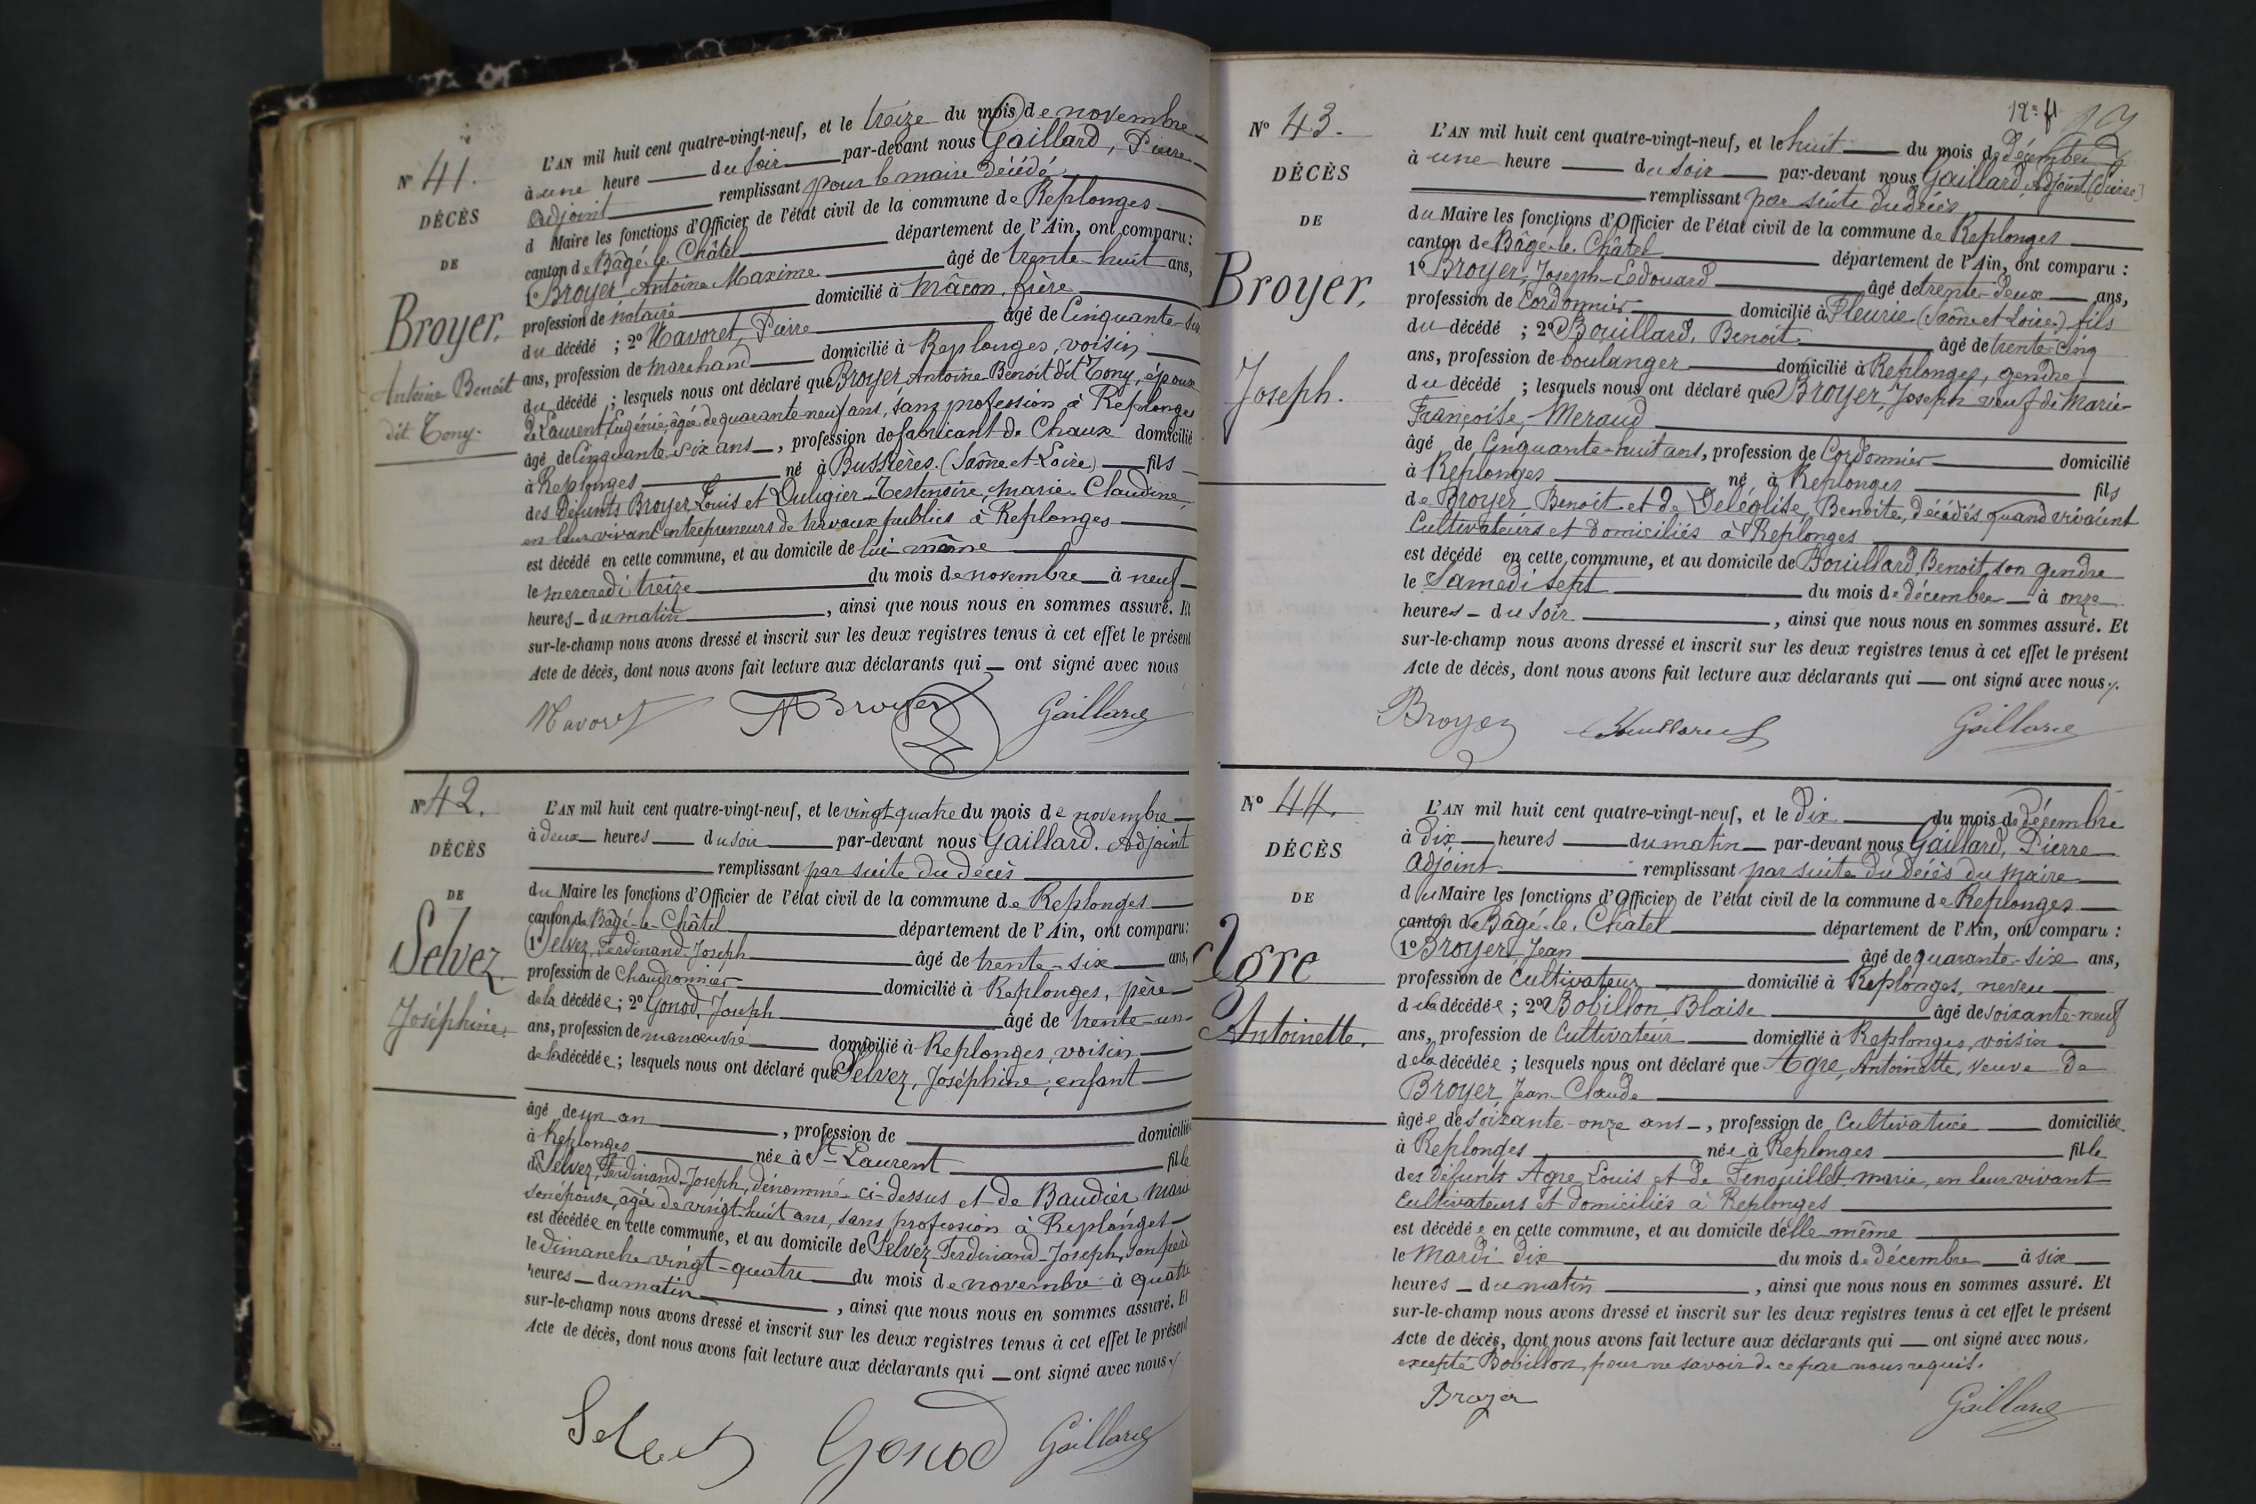 L'AN mil huit cent quatre-vingt-neuf, et le treize du mois de novembre
à une heure du soir par-devant nous Gaillard, Pierre
adjoint remplissant pour le maire décédé
d Maire les fonctions d'Officier de l'état civil de la commune de Replonges
canton de Bâgé-le-Châtel département de l'Ain, ont comparu :
1° Broyer Antoine Maxime âgé de trente-huit ans,
profession de notaire domicilié à Mâcon, frère
du décédé ; 2° Navoret, Pierre âgé de Cinquante-six
ans, profession de marchand domicilié à Replonges, voisin
du décédé ; lesquels nous ont déclaré que Broyer Antoine Benoit dit Tony, époux
de Laurent Eugénie, âgée de quarante-neuf ans, sans profession à Replonges
âgé de Cinquante-six ans, profession de fabricant de Chaux domicilié
à Replonges né à Bussières (Saône-et-Loire) fils
des défunts Broyer Louis et Duligier-Testenoire, Marie-Claudine,
en leur vivant entrepreneurs de travaux publics à Replonges
est décédé en cette commune, et au domicile de lui-même
le mercredi treize du mois de novembre à neuf
heures du matin, ainsi que nous nous en sommes assuré. Et
sur-le-champ nous avons dressé et inscrit sur les deux registres tenus à cet effet le présent
Acte de décès, dont nous avons fait lecture aux déclarants qui ont signé avec nous
Navoret Broyer Gaillard
N° 41.
DÉCÈS
DE
Broyer.
Antoine Benoit
dit Tony.
N° 42.
DÉCÈS
DE
Selvez
Joséphine.
L'AN mil huit cent quatre-vingt-neuf, et le vingt quatre du mois de novembre
à deux heures du soir par-devant nous Gaillard. Adjoint
remplissant par suite du décès
du Maire les fonctions d'Officier de l'état civil de la commune de Replonges
canton de Bâgé-le-Châtel département de l'Ain, ont comparu :
1° Selvez, Ferdinand-Joseph âgé de trente-six ans,
profession de Chaudronnier domicilié à Replonges, père
de la décédée ; 2° Gonod, Joseph âgé de trente-un
ans, profession de manœuvre domicilié à Replonges, voisin
de la décédée ; lesquels nous ont déclaré que Selvez, Joséphine, enfant
âgé de un an, profession de domicilié
à Replonges née à St-Laurent fille
de Selvez, Ferdinand-Joseph, dénommé ci-dessus et de Baudier Marie
son épouse, âgée de vingt-huit ans, sans profession à Replonges
est décédée en cette commune, et au domicile de Selvez Ferdinand-Joseph, son père
le Dimanche vingt-quatre du mois de novembre à quatre
heures du matin, ainsi que nous nous en sommes assuré. Et
sur-le-champ nous avons dressé et inscrit sur les deux registres tenus à cet effet le présent
Acte de décès, dont nous avons fait lecture aux déclarants qui ont signé avec nous.
Gonod Gaillard
N° 43.
DÉCÈS
DE
Broyer.
Joseph.
L'AN mil huit cent quatre-vingt-neuf, et le huit du mois de décembre
à une heure du soir par-devant nous Gaillard, Adjoint (Pierre)
remplissant par suite du décès
du Maire les fonctions d'Officier de l'état civil de la commune de Replonges
canton de Bâgé-le-Châtel département de l'Ain, ont comparu :
1° Broyer, Joseph-Edouard âgé de trente-deux ans,
profession de Cordonnier domicilié à Fleurie (Saône et Loire) fils
du décédé ; 2° Bouillard, Benoit âgé de trente-cinq
ans, profession de boulanger domicilié à Replonges, gendre
du décédé ; lesquels nous ont déclaré que Broyer, Joseph veuf de Marie-
Françoise, Meraud
âgé de Cinquante-huit ans, profession de Cordonnier domicilié
à Replonges né à Replonges fils
de Broyer Benoit et de Deléglise, Benoite, décédés quand vivaient
Cultivateurs et domiciliés à Replonges
est décédé en cette commune, et au domicile de Bouillard, Benoit, son gendre
le Samedi sept du mois de décembre à onze
heures du soir, ainsi que nous nous en sommes assuré. Et
sur-le-champ nous avons dressé et inscrit sur les deux registres tenus à cet effet le présent
Acte de décès, dont nous avons fait lecture aux déclarants qui ont signé avec nous.
Broyer Bouillard Gaillard
N° 44.
DÉCÈS
DE
Agre
Antoinette.
L'AN mil huit cent quatre-vingt-neuf, et le dix du mois de décembre
à dix heures du matin par-devant nous Gaillard, Pierre
adjoint remplissant par suite du décès du Maire
du Maire les fonctions d'Officier de l'état civil de la commune de Replonges
canton de Bâgé-le-Châtel département de l'Ain, ont comparu :
1° Broyer, Jean âgé de quarante-six ans,
profession de Cultivateur domicilié à Replonges, neveu
de la décédée ; 2° Bobillon, Blaise âgé de soixante-neuf
ans, profession de Cultivateur domicilié à Replonges, voisin
de la décédée ; lesquels nous ont déclaré que Agre, Antoinette, veuve de
Broyer, Jean-Claude
âgée de soixante-onze ans, profession de Cultivatrice domiciliée
à Replonges née à Replonges fille
des défunts Agre, Louis et de Fenouillet, marie, en leur vivant
Cultivateurs et domiciliés à Replonges
est décédée en cette commune, et au domicile d'elle-même
le Mardi dix du mois de décembre à six
heures du matin, ainsi que nous nous en sommes assuré. Et
sur-le-champ nous avons dressé et inscrit sur les deux registres tenus à cet effet le présent
Acte de décès, dont nous avons fait lecture aux déclarants qui ont signé avec nous.
excepté Bobillon, pour ne savoir de ce par nous requis.
Broyer Gaillard